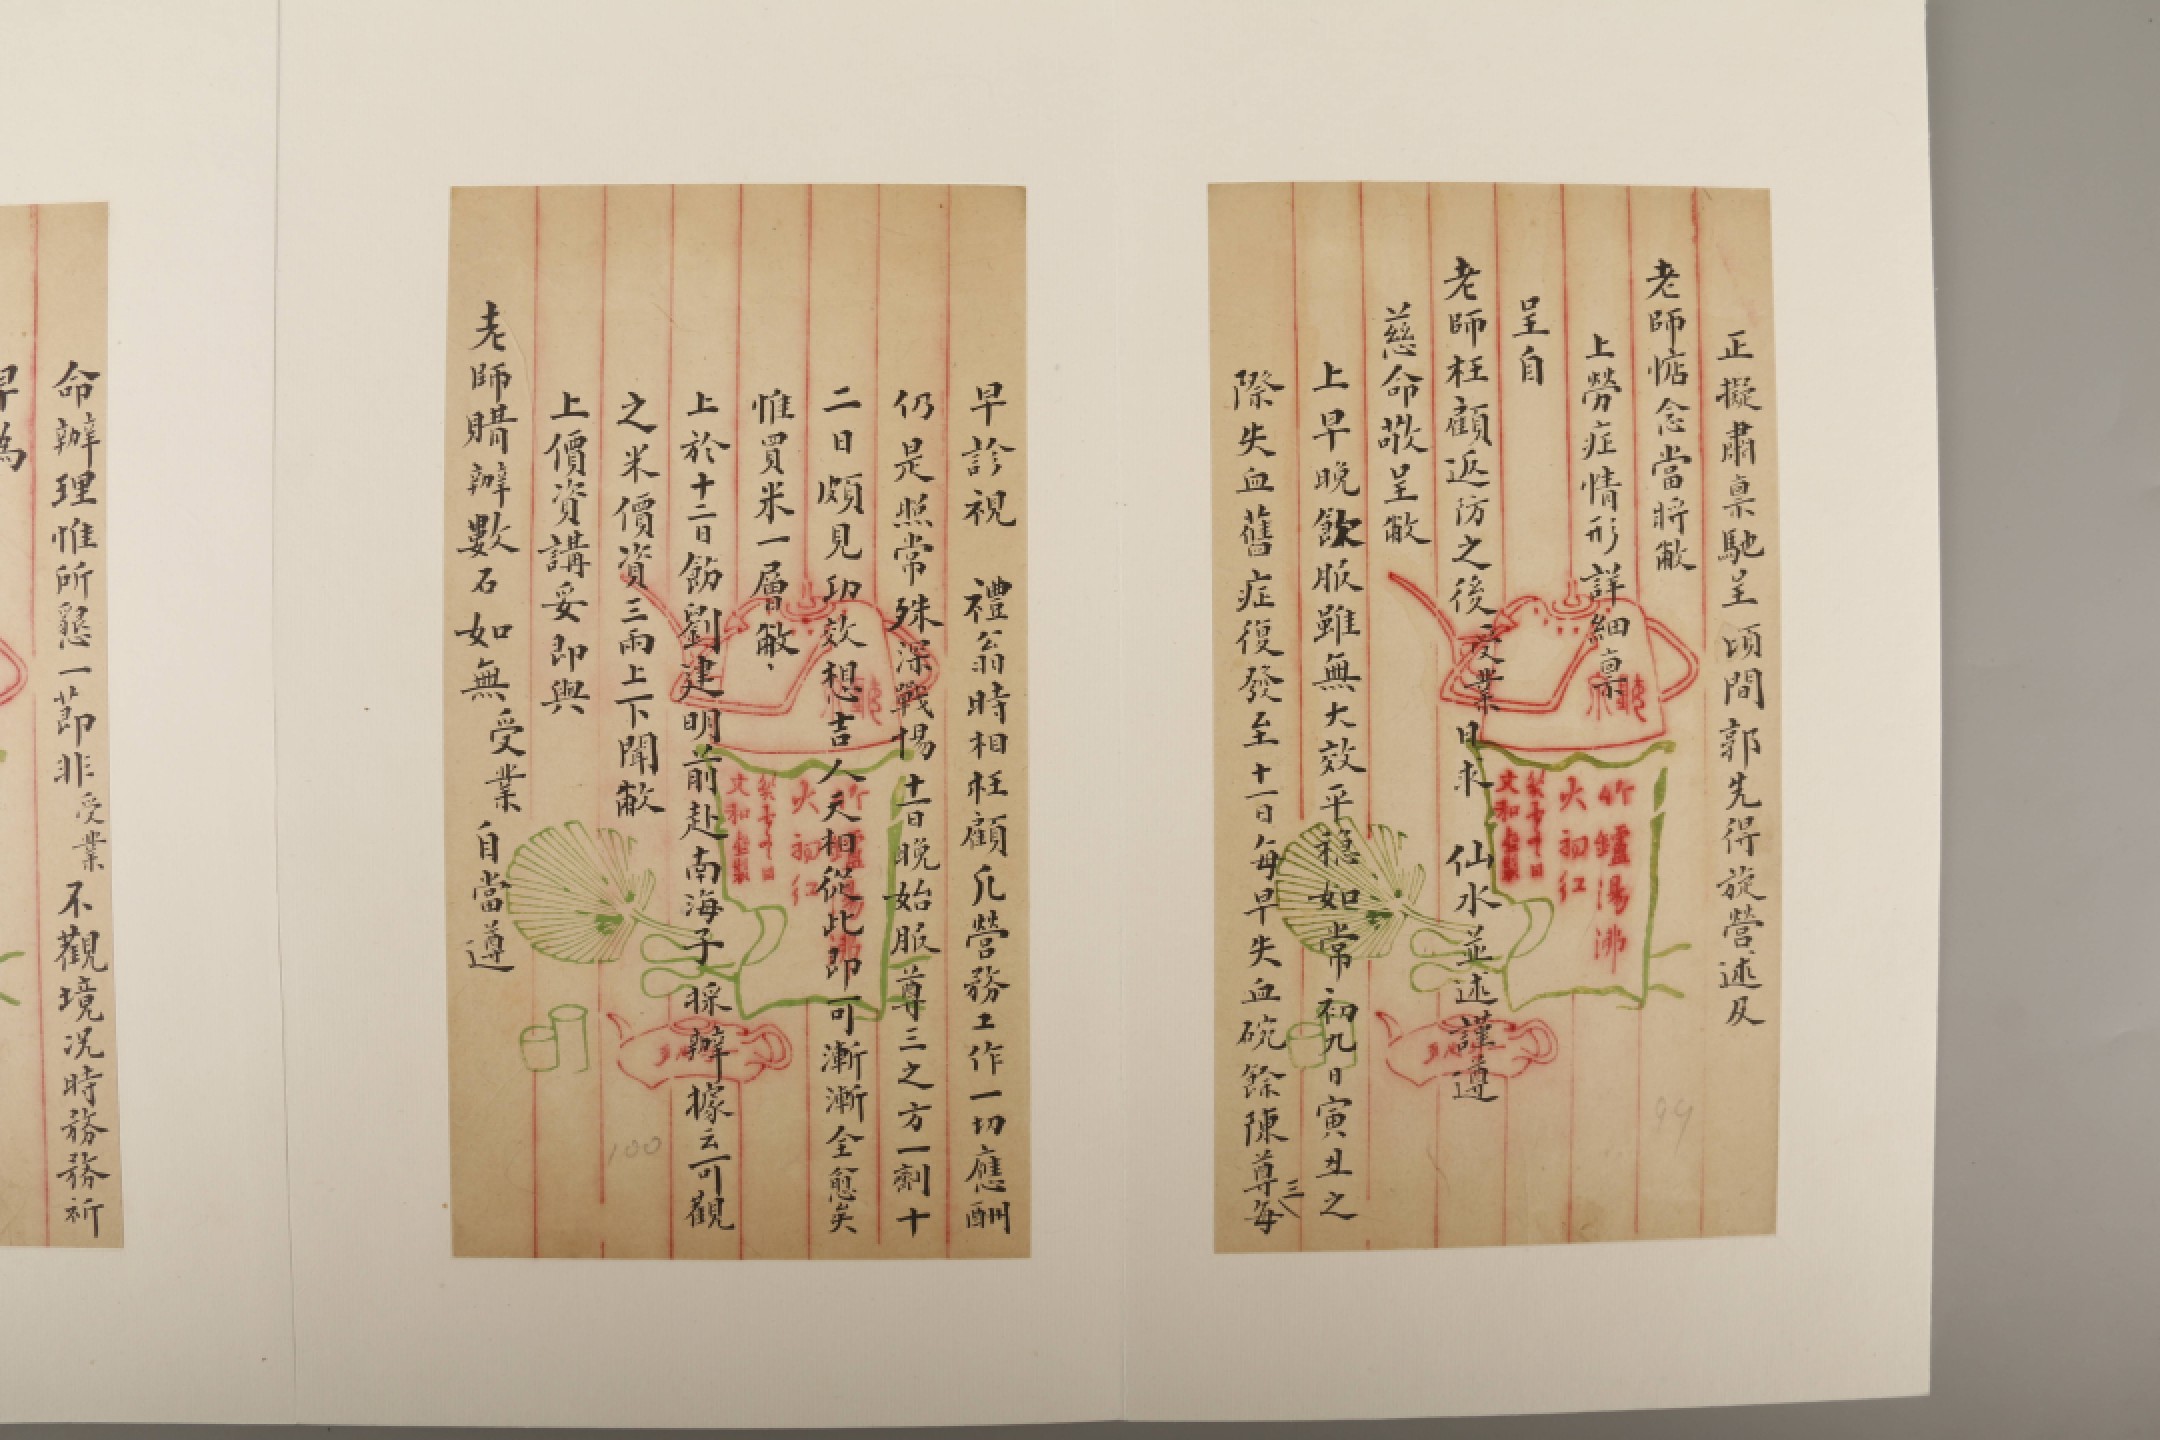 正擬肅稟馳呈頃間郭先得旋營述及
老師惦念當將敝
上勞症情形詳細稟
呈自
老師枉顧返防之後受業日求 仙水並述謹遵
慈命敬呈敝
上早晚飲服雖無大效平穩如常初九日寅丑之
際失血舊症復發至十一日每早失血碗餘陳尊三每
早診視 禮翁時相枉顧凡營務工作一切應酬
仍是照常殊深戰惕十一日晚始服尊三之方一劑十
二日頗見功效想吉人天相從此即可漸漸全愈矣
惟買米一層敝
上於十二日飭劉建明前赴南海子採辦據云可觀
之米價資三兩上下聞敝
上價資講妥即與
老師購辦數石如無受業自當遵
命辦理惟所懇一節非受業不觀境況時務務祈
早為
竹鑪湯沸
火初紅
文和